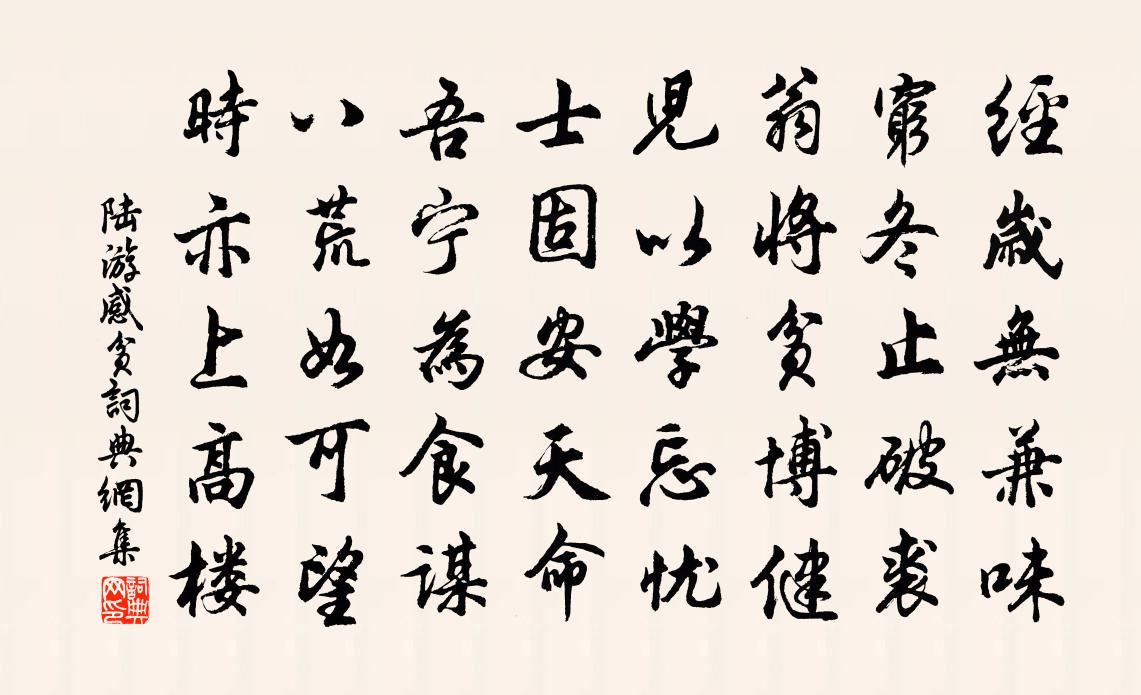 經歲無兼味
窮冬止破裘
翁將貧博健
児以學忘忧
士固安天命
吾宁為食謀
八荒如可望
時亦上高楼
陆游感貧詞典網集
詞典网印